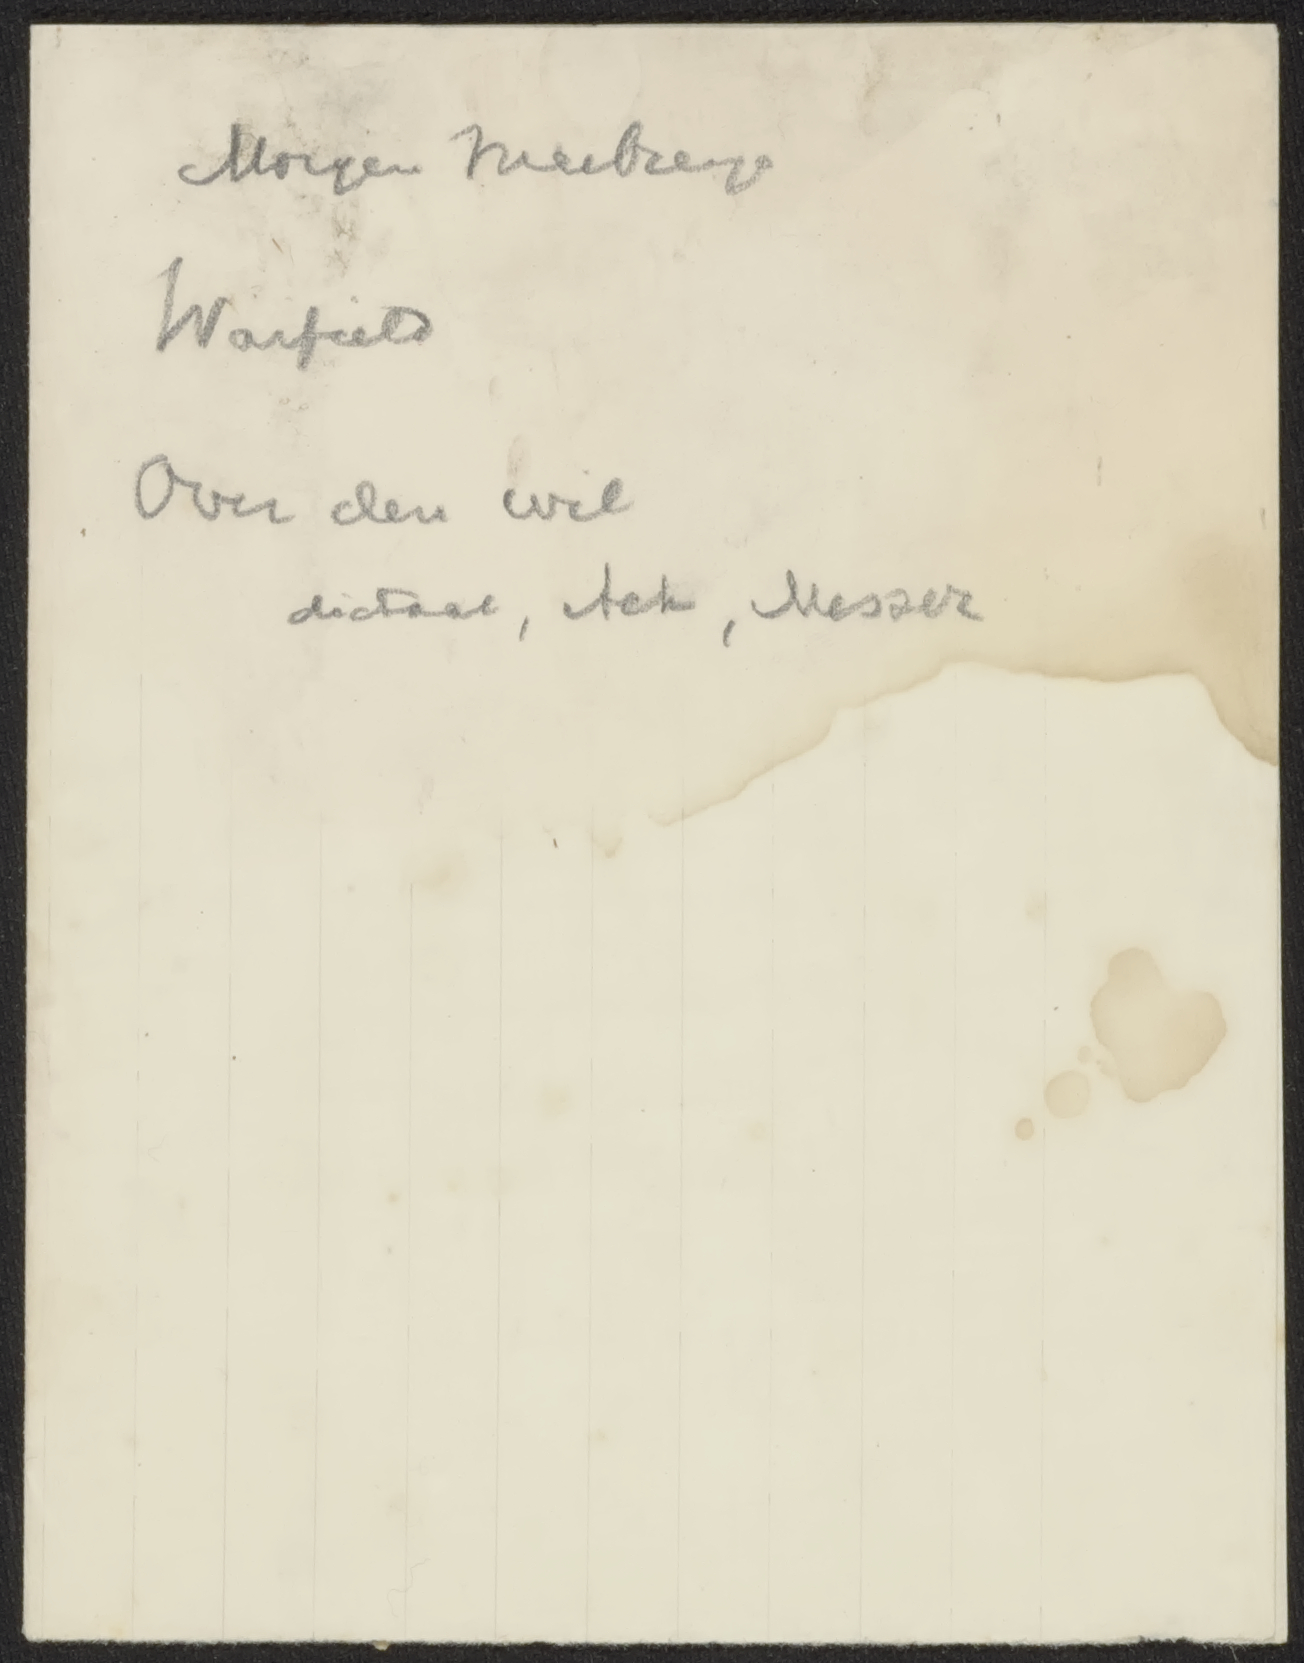 Morgen Meebrenge
Warfield
Over den wil
dictaat, Ach, Messer